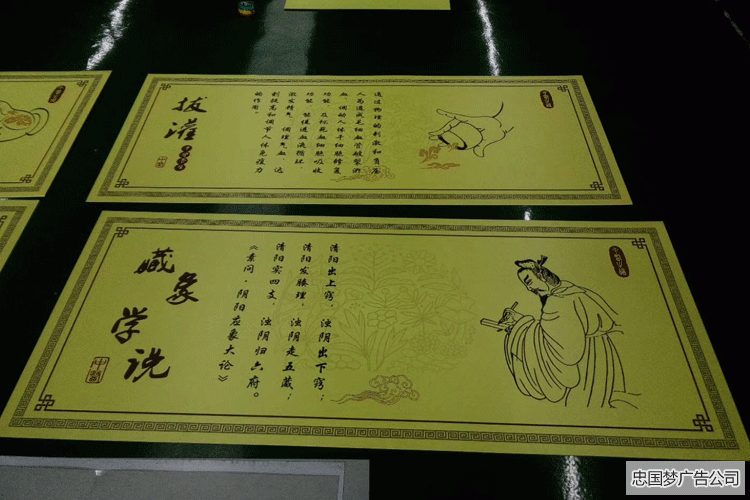 拔灌
通过物理的刺激和负压
人为造成毛细血管破裂瘀
血,调动人体干细胞修复
功能,及坏死血细胞吸收
功能,能促进血液循环,
激发精气,调理气血,达
到提高和调节人体免疫力
的作用。
藏象学说
中医
清阳出上窍,浊阴出下窍;
清阳发腠理,浊阴走五藏;
清阳实四支,浊阴归六府。
《素问·阴阳应象大论》
忠国梦广告公司